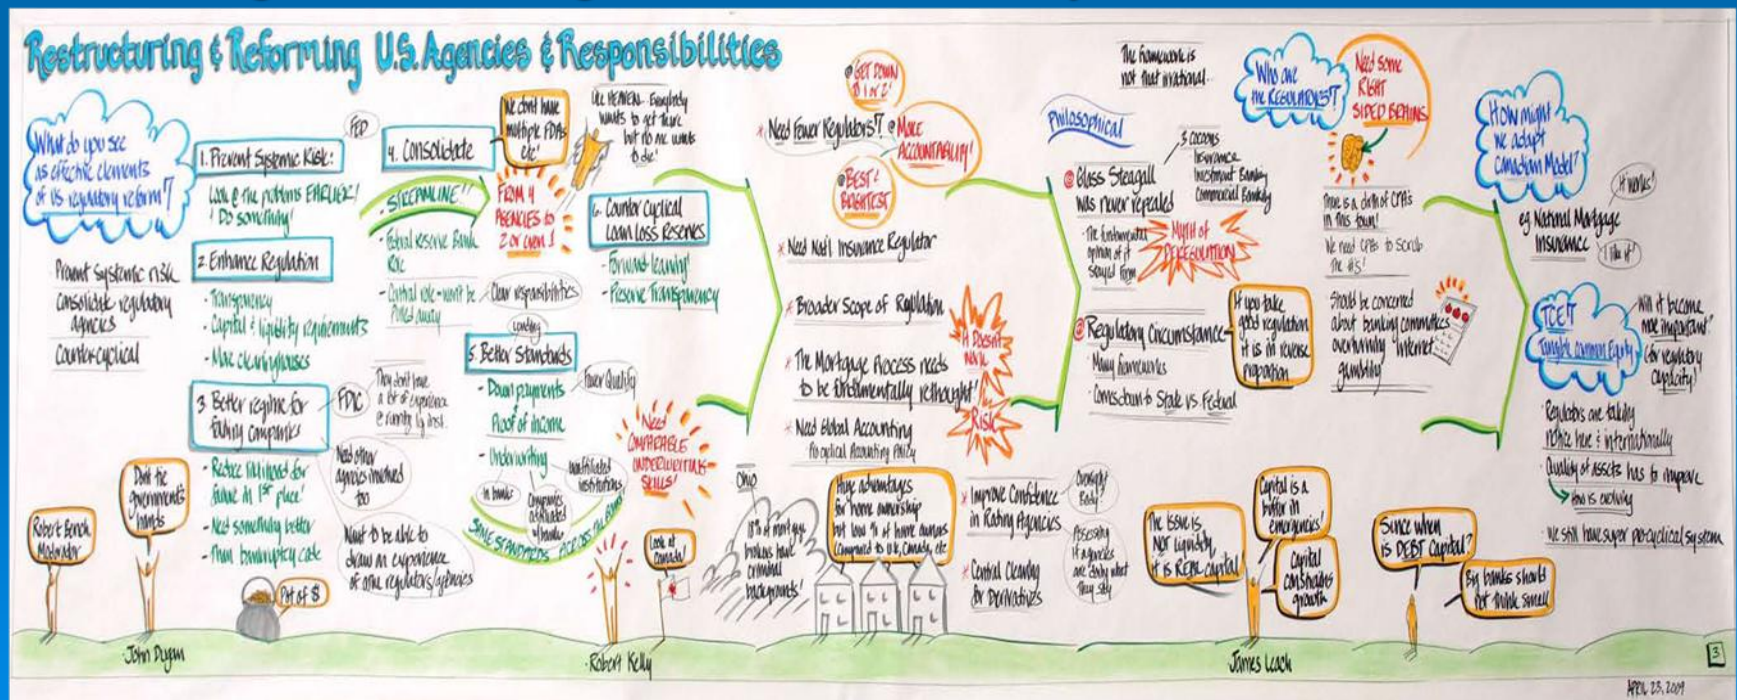 Restructuring & Reforming U.S. Agencies & Responsibilities
What do you see
as effective elements
of US regulatory reform?
Prevent systemic risk
Consolidate regulatory
agencies
Countercyclical
1. Prevent Systemic Risk:
FED
Look @ the problems EARLIER!
! Do something!
2. Enhance Regulation
- Transparency
- Capital & liquidity requirements
- More clearinghouses
3. Better regime for
failing companies
FDIC
They don't have
a lot of experience
@ running lg inst.
- Reduce likelihood for
failure in 1st place!
- Need something better
- Than bankruptcy code
Need other
agencies involved
too
Want to be able to
draw on experience
of other regulators/agencies
4. Consolidate
We don't have
multiple FDAs
etc!
Like HEAVEN... Everybody
wants to get there
but no one wants
to die!
STREAMLINE!!
FROM 4
AGENCIES to
2 or even 1
- Federal Reserve Bank
Role
- Central role-won't be
Pared away
Clear responsibilities
Lending
5. Better Standards
- Down payments
Fewer Qualify
Proof of income
- Underwriting
in banks
Companies
affiliated
w/banks
unaffiliated
institutions
SAME STANDARDS ACROSS THE BOARD
6. Counter Cyclical
Loan Loss Reserves
- Forward leaning!
- Preserve Transparency
Need
COMPARABLE
UNDERWRITING
SKILLS!
Robert Bench
Moderator
Don't tie
government's
hands
John Dugan
Pot of $
Robert Kelly
Look at
Canada!
* Need Fewer Regulators!?
@ GET DOWN
to 1 or 2!
@ MORE
ACCOUNTABILITY!
@ BEST &
BRIGHTEST
* Need Nat'l Insurance Regulator
* Broader Scope of Regulation
* The Mortgage Process needs
to be fundamentally rethought!
It Doesn't
work
* Need Global Accounting
Procyclical Accounting Policy
RISK
Ohio
18% of mortgage
brokers have
criminal
backgrounds!
Huge advantages
for home ownership
but low % of home owners
compared to U.K, Canada, etc
* Improve Confidence
in Rating Agencies
Oversight
Body?
* Central Clearing
for Derivatives
Assessing
if agencies
are doing what
they say
The framework is
not that irrational...
Philosophical
3 cocoons
Insurance
Investment Banking
Commercial Banking
@ Glass Steagall
was never repealed
- The fundamental
opinion of it
stayed firm
MYTH of
DEREGULATION
@ Regulatory Circumstance
- Many frameworks
- Comes down to State vs. Federal
If you take
good regulation
it is in reverse
proportion
Who are
the REGULATORS?
Need some
RIGHT
SIDED BRAINS
There is a dirth of CPA's
in this town!
We need CPAs to scrub
the #s!
Should be concerned
about banking committees
overturning internet
gambling
The Issue is
Not Liquidity,
it is REAL capital!
Capital is a
buffer in
emergencies!
Capital
constrains
growth
James Leach
Since when
is DEBT Capital?
Big banks should
not think small
How might
we adapt
Canadian Model?
It works!
eg National Mortgage
Insurance
I like it!
TCE!?
Tangible common Equity
Will it become
more important?
(for regulatory
capacity!)
- Regulators are taking
notice here & internationally
- Quality of assets has to improve
this is evolving
- We still have super pro-cyclical system
3
APRIL 23, 2009